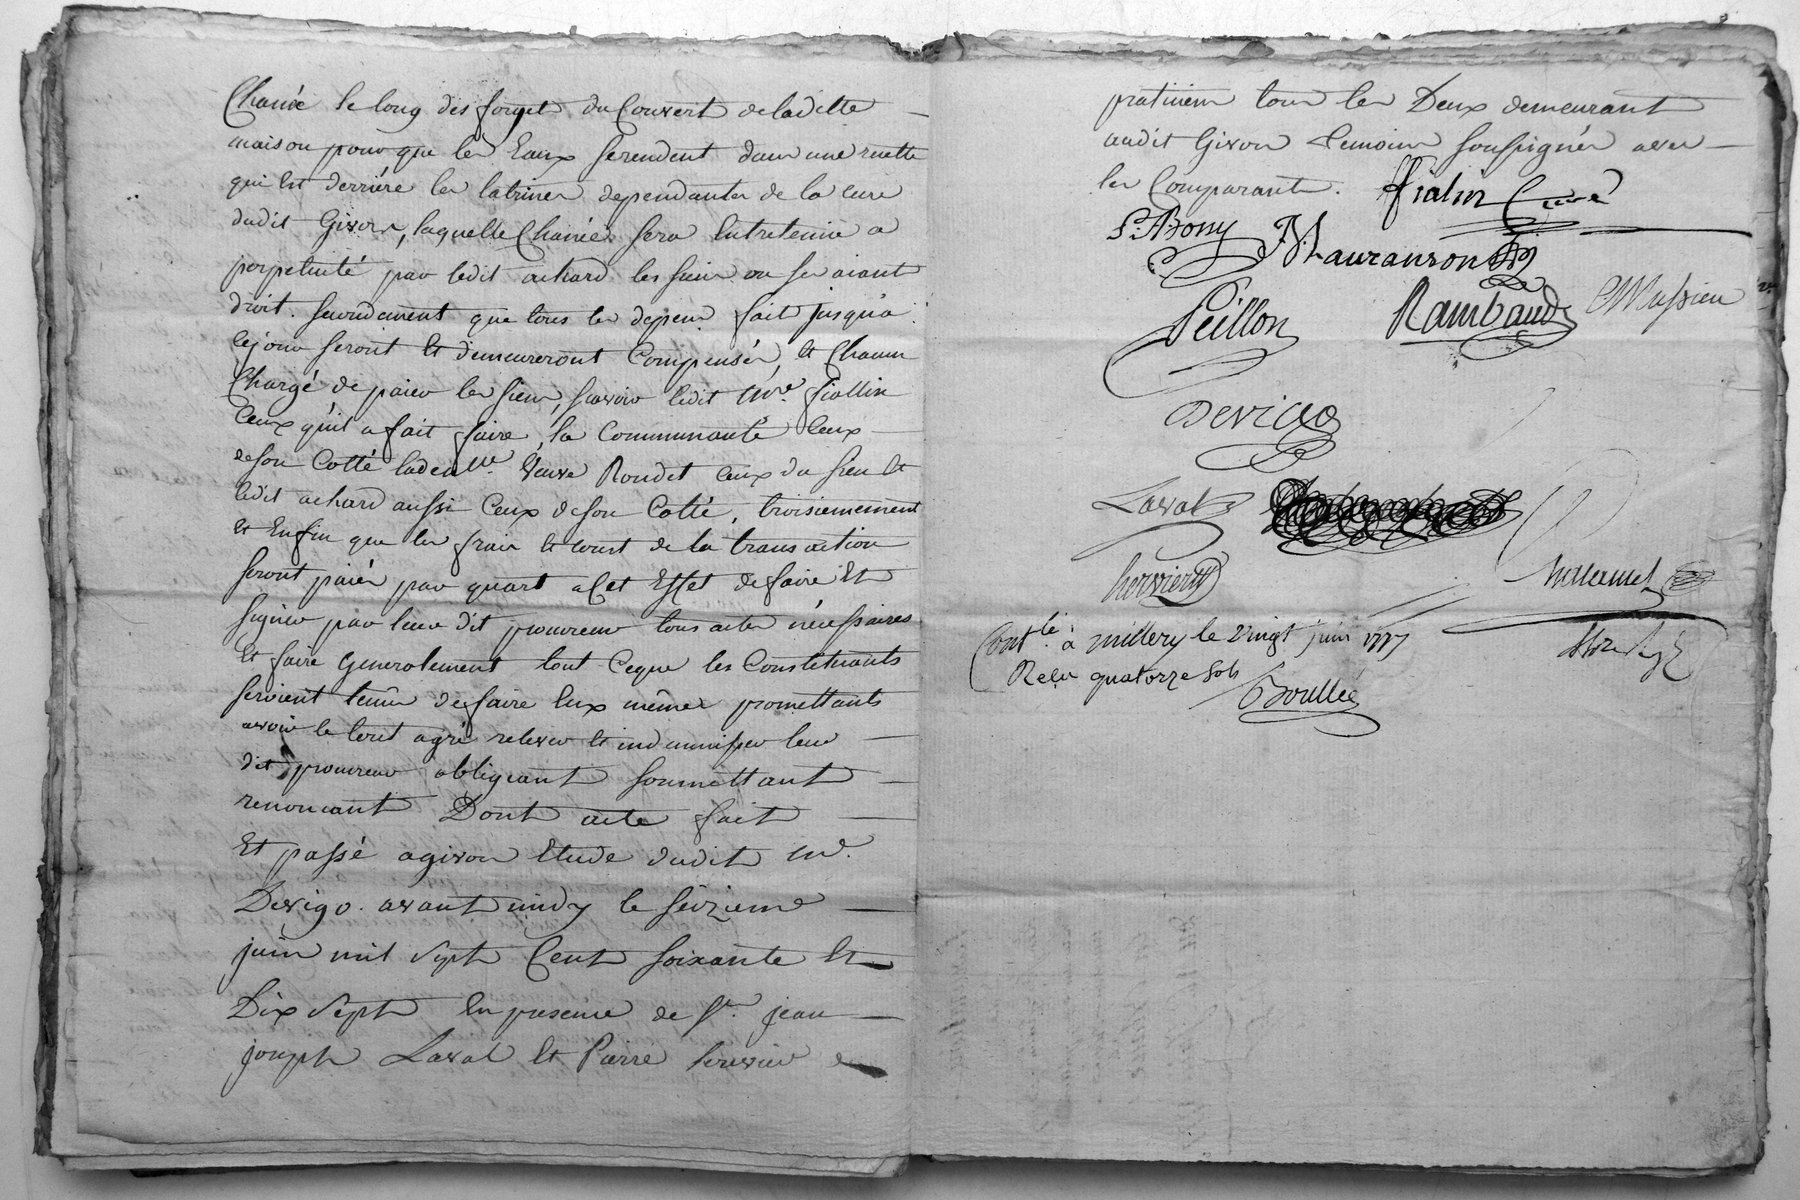 Chanée le long des forget du Couvert deladitte
maison pour que les Eaux serendent dans une ruelle
qui Est derriére les latrines dependantes de la cure
dudit Givors, laquelle Chanée sera Entretenüe a
perpetuité par ledit achard les siens ou ses aiant
droit. secondement que tous les depens fait jusqu'a
cejour seront Et demeureront Compensés, Et Chacun
Chargé de paier les siens, scavoir ledit Mre. fiallin
Ceux qu'il a fait faire, la Communauté Ceux
deson Cotté ladelle. Veuve Rondet Ceux du sien Et
ledit achard aussi Ceux deson Cotté, troisiemement
Et Enfin que les frais Et coust de la transaction
seront paiés par quart a Cet Effet defaire Et
signer par leur dit procureur tous actes nécessaires
Et faire generalement tout Ceque les Constituants
seroient tenus defaire Eux mêmes promettants
avoir le tout agré relever Et indemniser leur
dit procureur obligeant soumettant
renoncant Dont acte fait
Et passé agivors Etude dudit me.
Devigo. avant midy le séizieme
juin mil sept Cent soixante Et
Dix sept En presence de sr. jean
joseph Laval Et Pierre hervier
praticiens tous les Deux demeurant
audit Givors temoins soussignés avec
les Comparants. fialin Curé
P. Bony Mauranson
Peillon Rambaud Massieu
Devigo
Laval
hervier
Contlé. à millery le vingt juin 1777
Reçu quatorze sols
Boullée